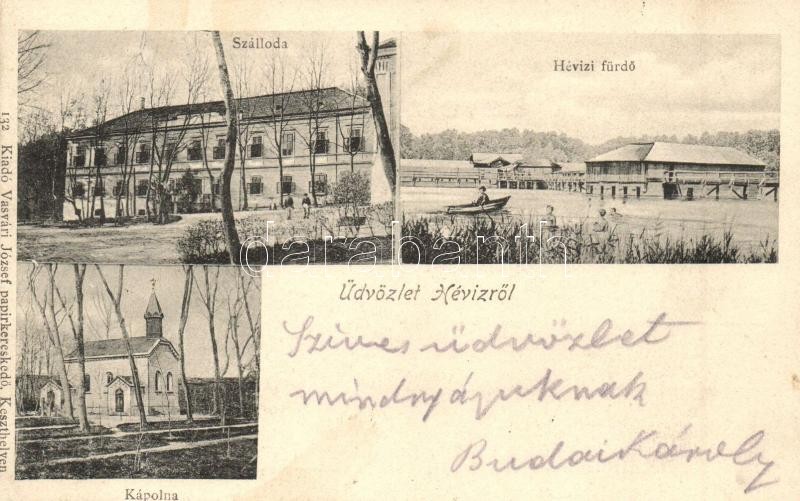 Szálloda
Hévizi fürdő
132 Kiadó Vasvári József papirkereskedő, Keszthelyen
darabanth
Üdvözlet Hévizről
Szives üdvözlet
mindnyájuknak
Budai Károly
Kápolna